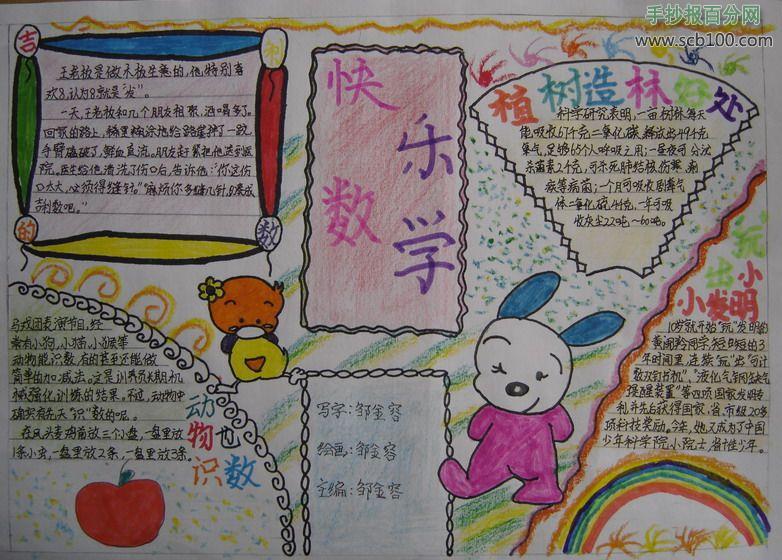 手抄报百分网
www.scb100.com
吉利的数
王老板是做木板生意的,他特别喜
欢8,认为8就是“发”。
一天,王老板和几个朋友相聚,酒喝多了。
回家的路上,稀里糊涂地给路
手臂磕破了,鲜血直流。朋友赶紧把他送到医
院,医生给他清洗了伤口后,告诉他:“你这伤
口太大,必须得缝针。”麻烦你多缝几针,8凑成
吉利数吧。”
快乐数学
植树造林好处
科学研究表明,一亩树林每天
能吸收67千克二氧化碳,释放出49千克
氧气,足够65个人呼吸之用;一昼夜可分泌
杀菌素2千克,可杀死肺结核伤寒、
疾等病菌;一个月可吸收有毒气
体二氧化硫4千克,一年可吸
收灰尘22吨~60吨。
玩出小
小发明
10岁就开始“玩”发明的
黄同学在短短的3
年时间里,连续“玩”出“可计
数双钉书机”、“液化气
提醒装置”等四项国家发明专
利并先后获得国家、省、市级20多
项科技奖励。今年,她又成为了中国
少年科学院小院士,省十佳少年。
马戏团表演节目,经
常有小狗,小猫,小猴等
动物能识数,有的甚至还能做
简单的加减法。这是训养员长期机
械强化训练的结果。不过,动物中
确实有先天“识”数的呢。
在凤头麦鸡面前放三个小盘,一盘里放
1条小虫,一盘里放2条,一盘里放3条。
动物也
识数
写字:邹金容
绘画:邹金容
主编:邹金容